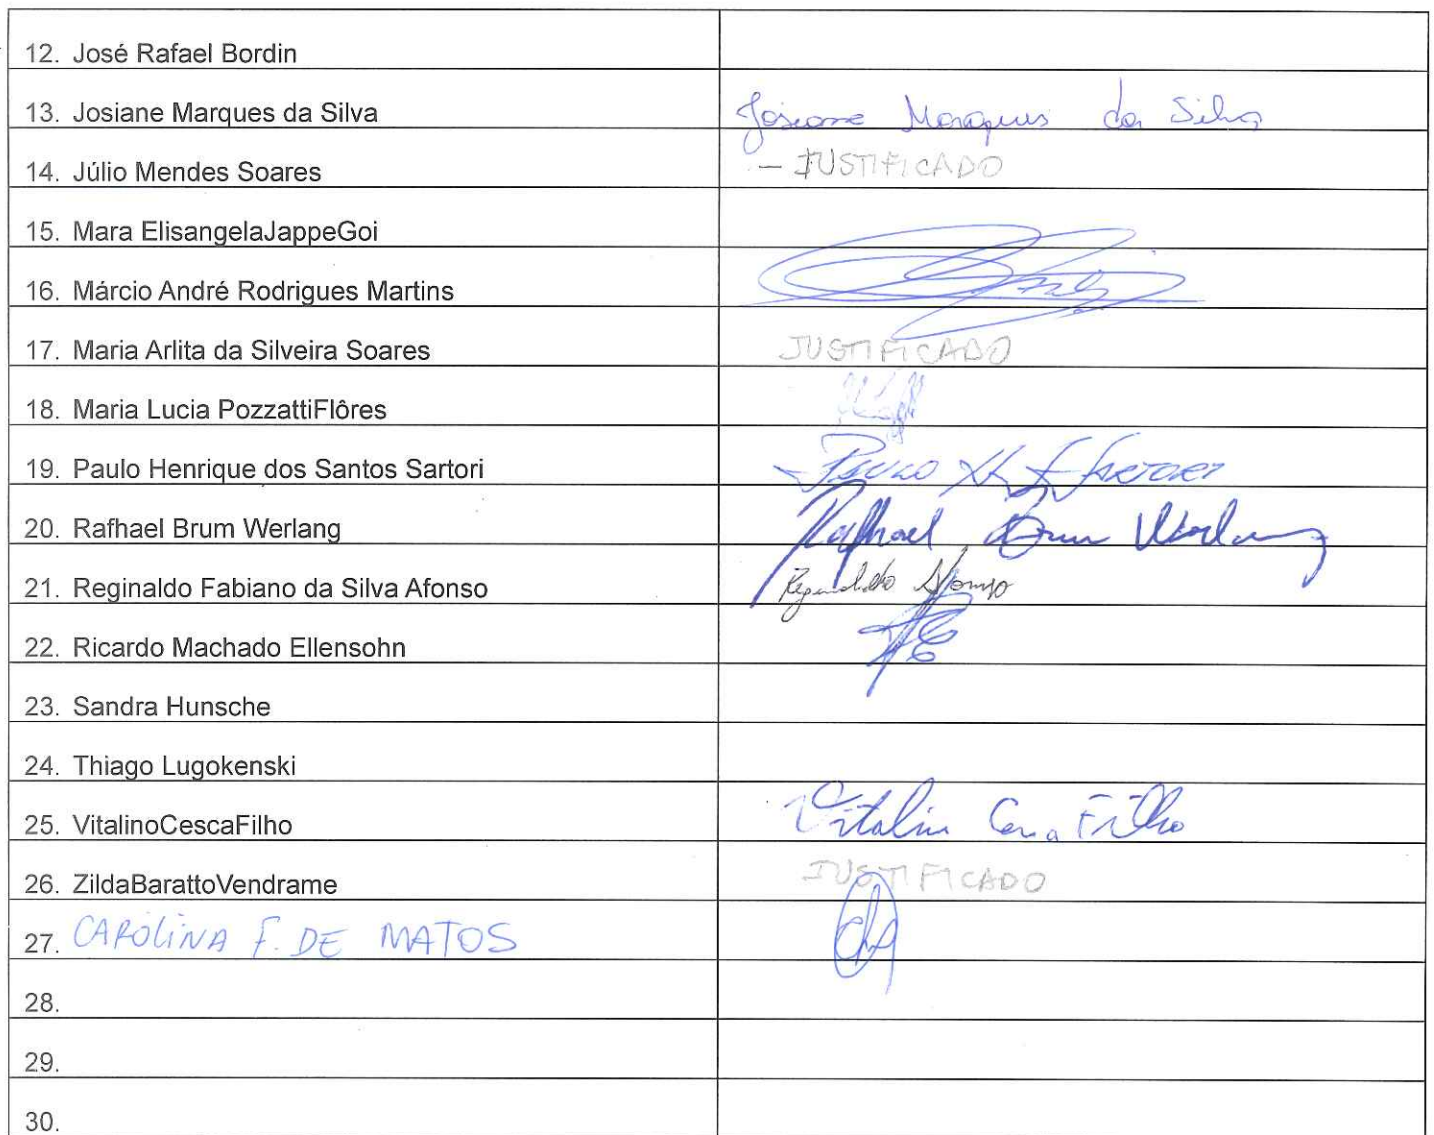 12. José Rafael Bordin
13. Josiane Marques da Silva Josiane Marques da Silva
14. Júlio Mendes Soares – JUSTIFICADO
15. Mara ElisangelaJappeGoi
16. Márcio André Rodrigues Martins
17. Maria Arlita da Silveira Soares JUSTIFICADO
18. Maria Lucia PozzattiFlôres
19. Paulo Henrique dos Santos Sartori Paulo H. S. Sartori
20. Rafhael Brum Werlang Rafhael Brum Werlang
21. Reginaldo Fabiano da Silva Afonso Reginaldo Afonso
22. Ricardo Machado Ellensohn
23. Sandra Hunsche
24. Thiago Lugokenski
25. VitalinoCescaFilho Vitalino Cesca Filho
26. ZildaBarattoVendrame JUSTIFICADO
27. CAROLINA F. DE MATOS
28.
29.
30.